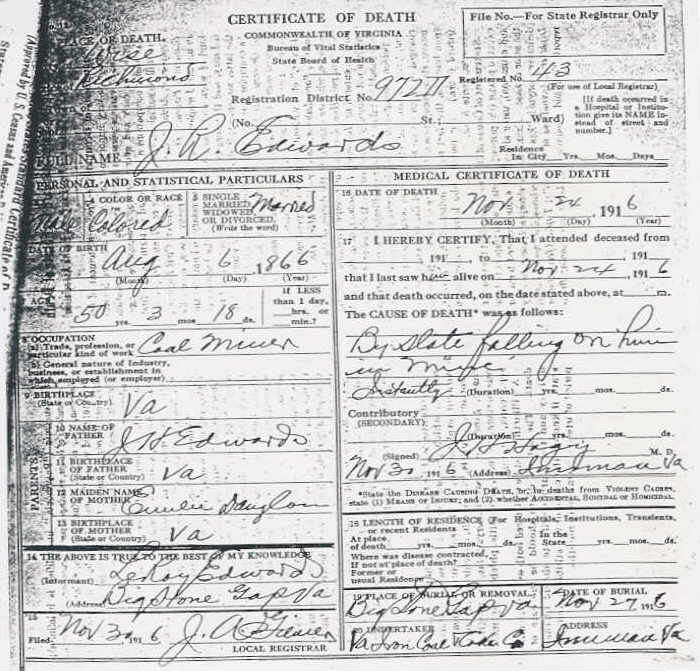 CERTIFICATE OF DEATH
COMMONWEALTH OF VIRGINIA
Bureau of Vital Statistics
State Board of Health
File No.—For State Registrar Only
PLACE OF DEATH.
Wise
Richmond
Registration District No.
Registered No. 43
(For use of Local Registrar)
(No. St.; Ward)
[If death occurred in a Hospital or Institution give its NAME instead of street and number.]
FULL NAME J. R. Edwards
Residence In City Yrs. Mos. Days
PERSONAL AND STATISTICAL PARTICULARS
4 COLOR OR RACE
Male Colored
5 SINGLE MARRIED, WIDOWED OR DIVORCED. (Write the word) Married
DATE OF BIRTH
Aug 6 1866
(Month) (Day) (Year)
AGE
50 yrs. 3 mos. 18 ds.
If LESS than 1 day, hrs. or min.?
8 OCCUPATION
(a) Trade, profession, or particular kind of work Coal Miner
(b) General nature of Industry, business, or establishment in which employed (or employer)
9 BIRTHPLACE (State or Country) Va
PARENTS
10 NAME OF FATHER J H Edwards
11 BIRTHPLACE OF FATHER (State or Country) Va
12 MAIDEN NAME OF MOTHER
13 BIRTHPLACE OF MOTHER (State or Country) Va
14 THE ABOVE IS TRUE TO THE BEST OF MY KNOWLEDGE
(Informant) LeRoy Edwards
(Address) Big Stone Gap Va
15
Filed Nov 30 1916 J. A.
LOCAL REGISTRAR
MEDICAL CERTIFICATE OF DEATH
16 DATE OF DEATH
Nov 24, 1916
(Month) (Day) (Year)
17 I HEREBY CERTIFY, That I attended deceased from
191 , to , 191
that I last saw him alive on Nov 24, 1916
and that death occurred, on the date stated above, at m.
The CAUSE OF DEATH* was as follows:
By Slate falling on him
in Mine
Instantly (Duration) yrs. mos. ds.
Contributory (SECONDARY)
(Duration) yrs. mos. ds.
(Signed) J. M. D.
Nov 30 1916 (Address) Inman Va
*State the DISEASE CAUSING DEATH, or, in deaths from VIOLENT CAUSES, state (1) MEANS OF INJURY; and (2) whether ACCIDENTAL, SUICIDAL OR HOMICIDAL.
18 LENGTH OF RESIDENCE (For Hospitals, Institutions, Transients, or recent Residents
At place of death yrs. mos. ds. In the State yrs. mos. ds.
Where was disease contracted, If not at place of death?
Former or usual Residence
19 PLACE OF BURIAL OR REMOVAL,
Big Stone Gap Va.
DATE OF BURIAL
Nov 27, 1916
20 UNDERTAKER
Va Iron Coal & Coke Co
ADDRESS
Inman Va